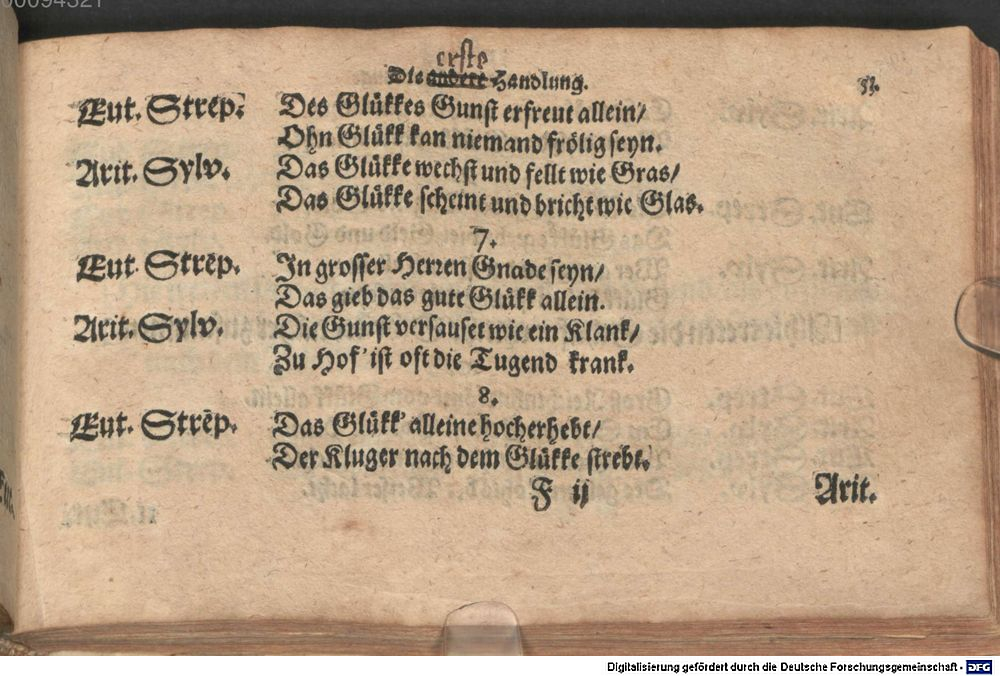 00094321
erste
Die andere Handlung.
Eut. Strep. Des Glükkes Gunst erfreut allein/
Ohn Glükk kan niemand frölig seyn.
Arit. Sylv. Das Glükke wechst und fellt wie Gras/
Das Glükke scheint und bricht wie Glas.
7.
Eut. Strēp. In grosser Herren Gnade seyn/
Das gieb das gute Glükk allein.
Arit. Sylv. Die Gunst versauset wie ein Klank/
Zu Hof' ist oft die Tugend krank.
8.
Eut. Strēp. Das Glükk' alleine hocherhebt/
Der Kluger nach dem Glükke strebt.
F ij Arit.
Digitalisierung gefördert durch die Deutsche Forschungsgemeinschaft - DFG